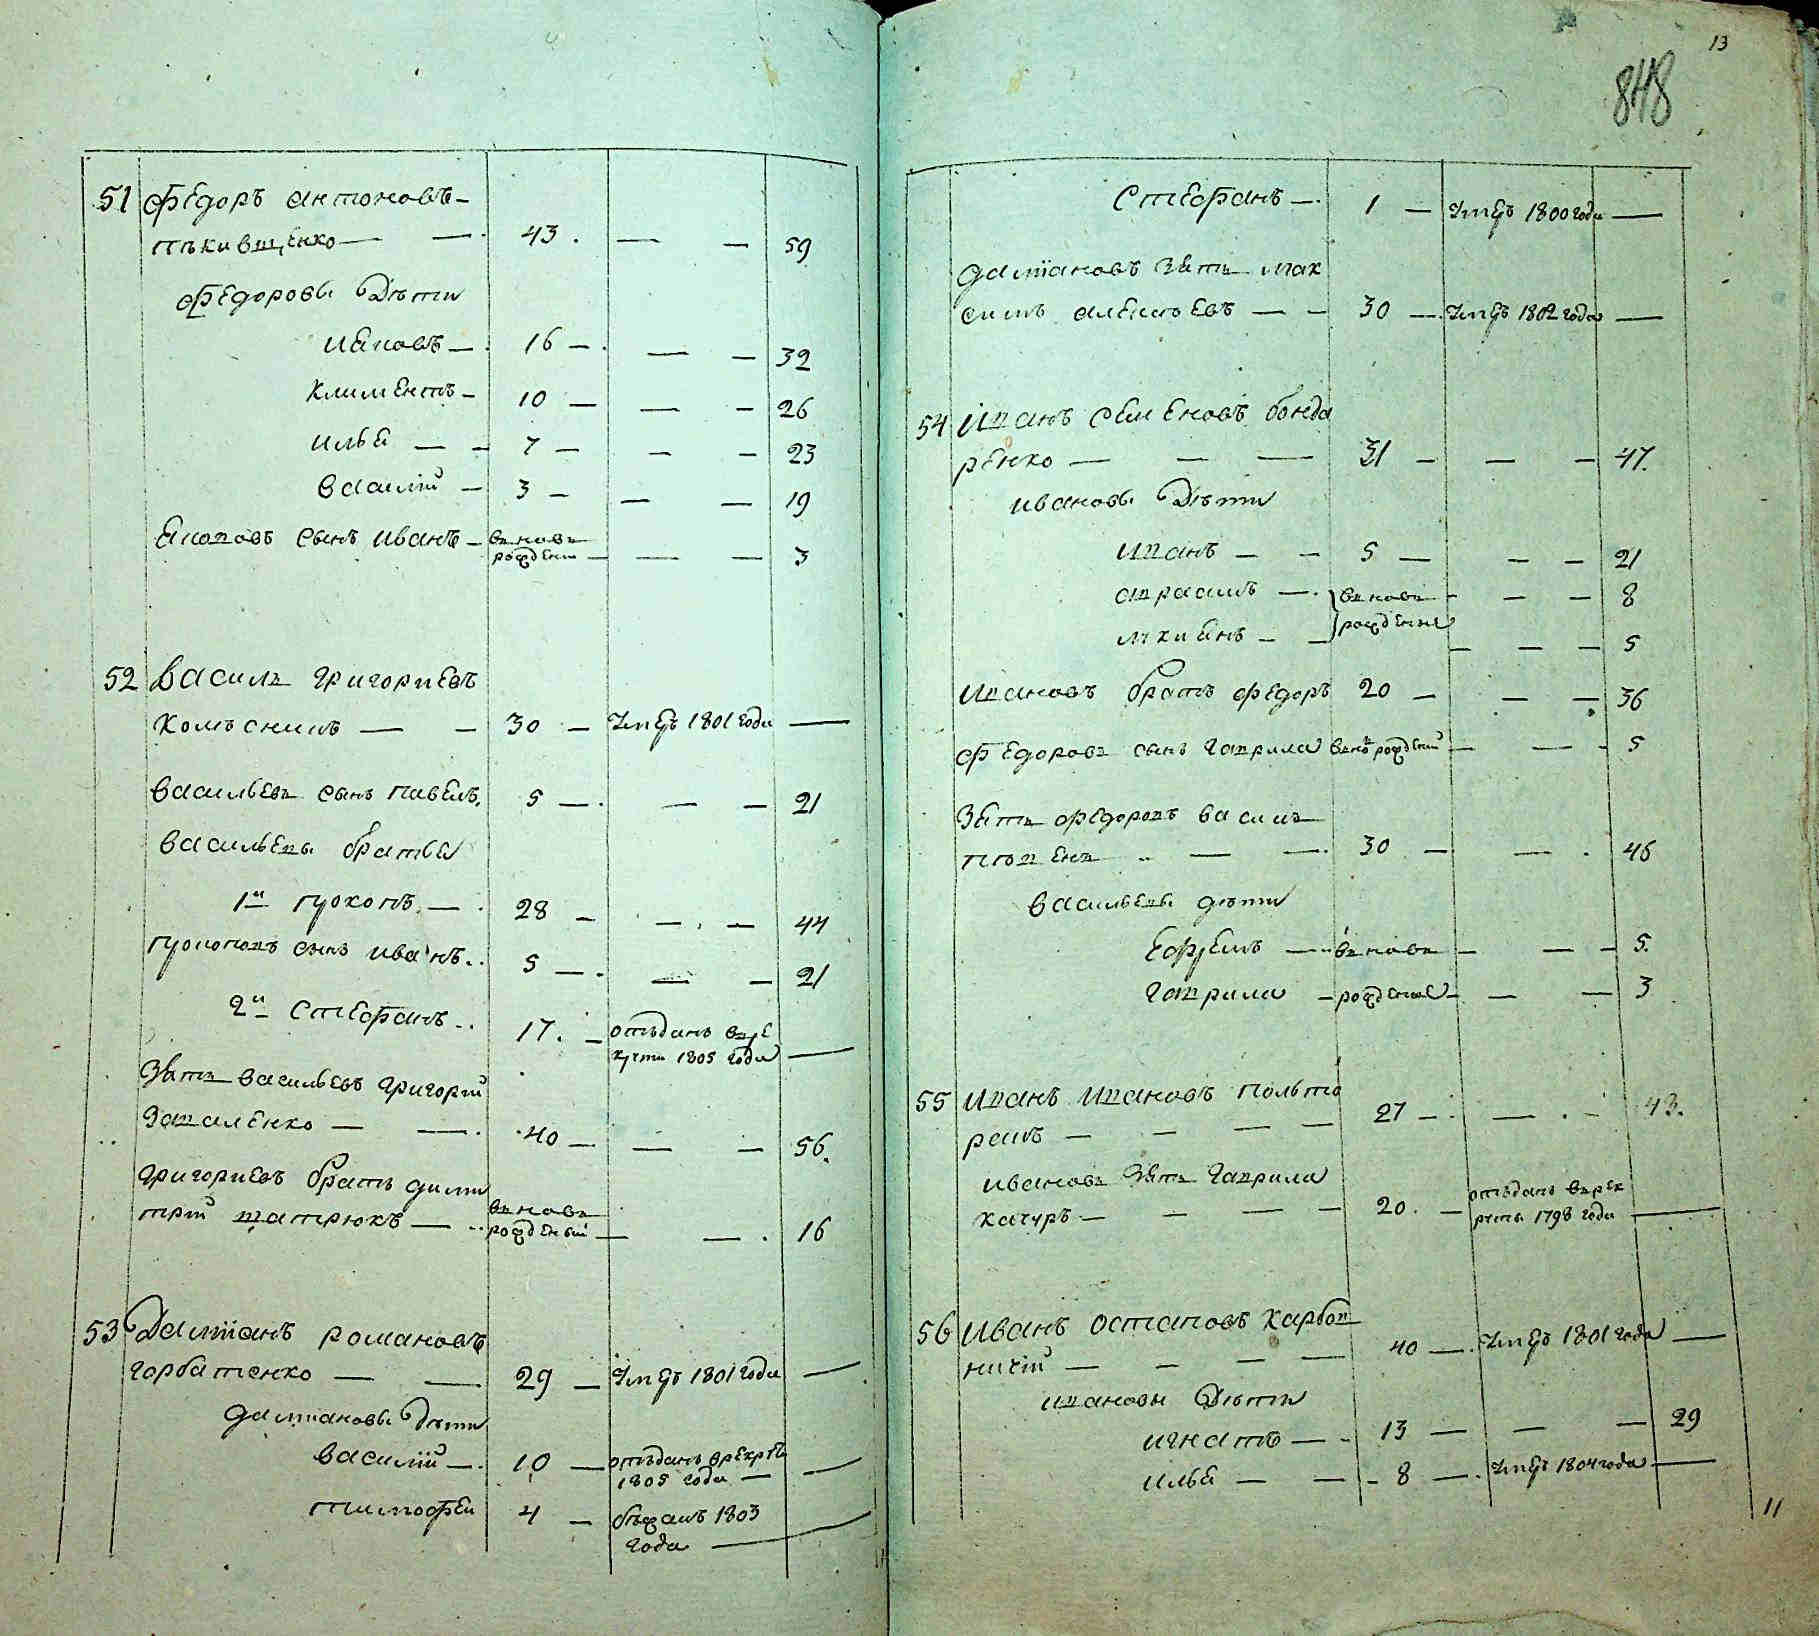 51 Федоръ антоновъ
пъкивщенко 43. 59
Федоровы Дѣти
Яковъ 16 32
климентъ 10 26
илья 7 23
василій 3 19
Яковъ сынъ иванъ вновь
рожденъ 3
52 василь григориевъ
30 Умеръ 1801 года
васильевъ сынъ павелъ 5 21
васильевы братья
1й прокопъ 28 44
прокоповъ сынъ иванъ 5 21
2й Стефанъ 17. отъданъ врек
руты 1805 года
Зять васильевъ григорій
40 56.
григориевъ братъ дими
трій вновь
рожденый 16
53 Даміанъ романовъ
горбатенко 29 Умеръ 1801 года
даміановы Дѣти
василій 10 отъданъ врекрты
1805 года
тимофеи 4 бѣжалъ 1803
года
13
848
Стефанъ 1 Умеръ 1800 года
даміановъ зять мак
симъ алексѣевъ 30 Умеръ 1802 года
54 Иванъ семеновъ бонда
ренко 31 47.
ивановы Дѣти
иванъ 5 21
авраамъ вновь 8
лукиянъ рожденые 5
ивановъ братъ федоръ 20 36
Федоровъ сынъ гаврила вновь рожденый 5
Зять федоровъ василь
30 46
васильевы дѣти
Ефремъ вновь 5.
гаврила рожденые 3
55 Иванъ Ивановъ польто
рацъ 27 43.
ивановъ зять гаврила
качуръ 20. отъданъ врек
руты 1798 года
56 Иванъ остаповъ карбов
ничій 40 Умеръ 1801 года
ивановы Дѣти
игнатъ 13 29
илья 8 Умеръ 1804 года
11